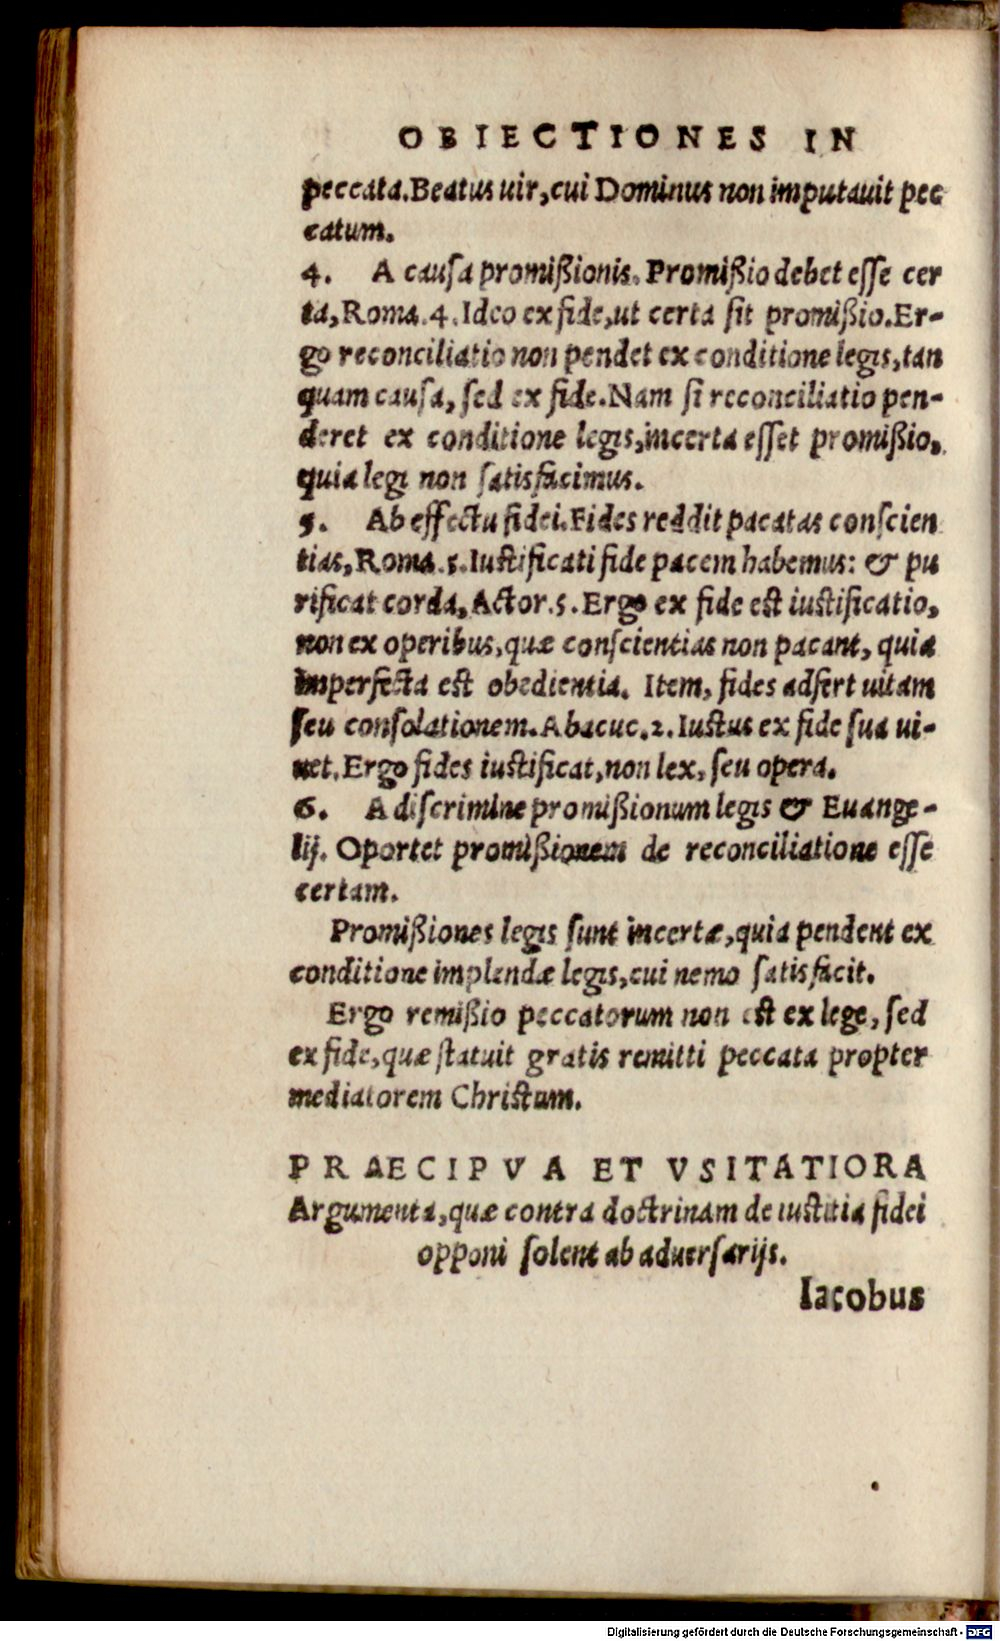 OBIECTIONES IN
peccata. Beatus uir, cui Dominus non imputauit pec
catum.
4. A causa promißionis. Promißio debet esse cer
ta, Roma. 4. Ideo ex fide, ut certa sit promißio. Er-
go reconciliatio non pendet ex conditione legis, tan
quam causa, sed ex fide. Nam si reconciliatio pen-
deret ex conditione legis, incerta esset promißio,
quia legi non satisfacimus.
5. Ab effectu fidei. Fides reddit pacatas conscien
tias, Roma. 5. Iustificati fide pacem habemus: & pu
rificat corda, Actor. 5. Ergo ex fide est iustificatio,
non ex operibus, quæ conscientias non pacant, quia
imperfecta est obedientia. Item, fides adfert uitam
seu consolationem. Abacuc. 2. Iustus ex fide sua ui-
uet. Ergo fides iustificat, non lex, seu opera.
6. A discrimine promißionum legis & Euange-
lij. Oportet promißionem de reconciliatione esse
certam.
Promißiones legis sunt incertæ, quia pendent ex
conditione implendæ legis, cui nemo satisfacit.
Ergo remißio peccatorum non est ex lege, sed
ex fide, quæ statuit gratis remitti peccata propter
mediatorem Christum.
PRAECIPVA ET VSITATIORA
Argumenta, quæ contra doctrinam de iustitia fidei
opponi solent ab aduersarijs.
Iacobus
Digitalisierung gefördert durch die Deutsche Forschungsgemeinschaft - DFG